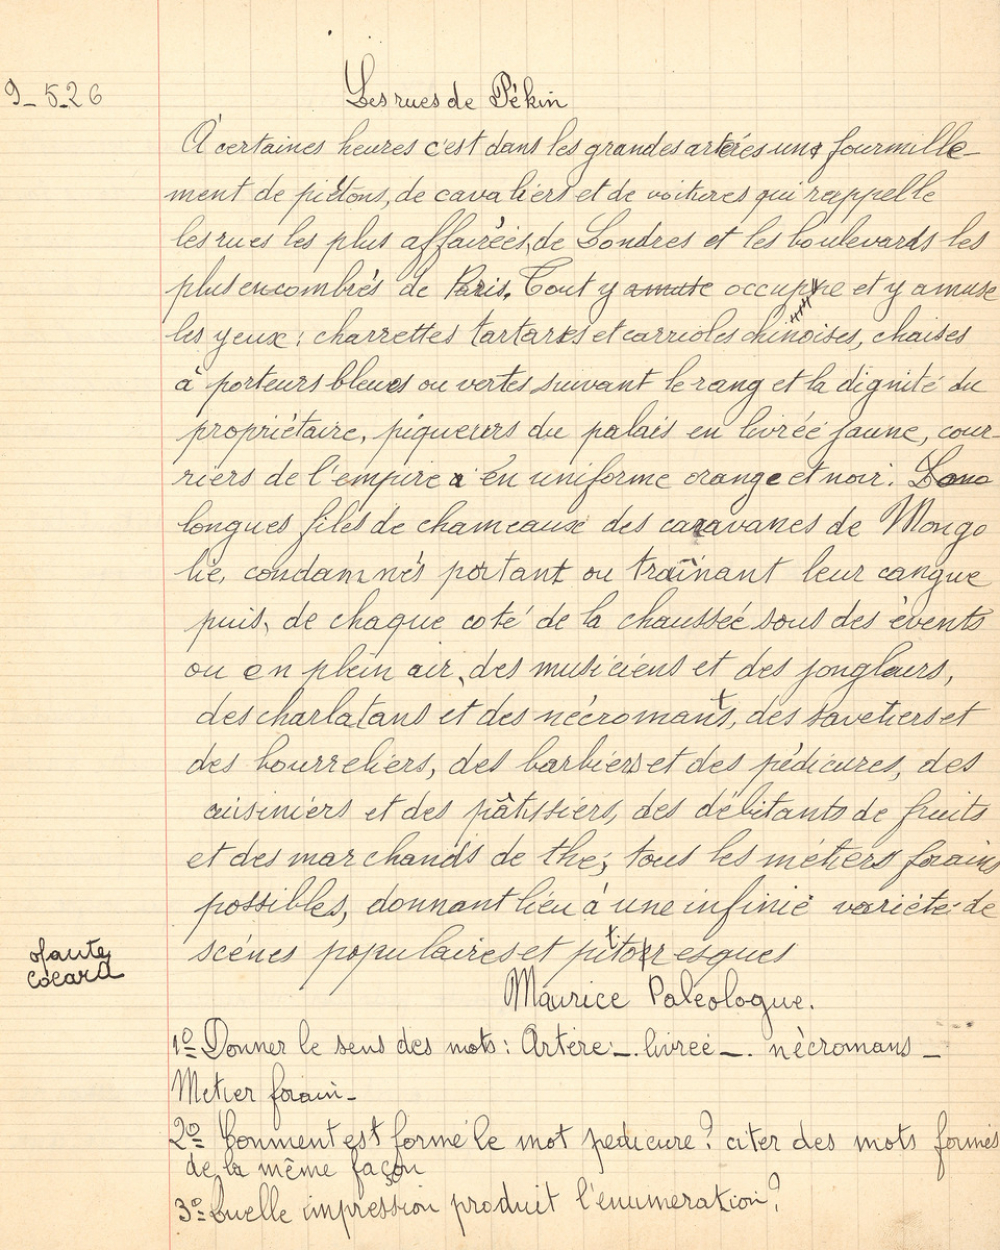 9_5_26
Les rues de Pékin
À certaines heures c'est dans les grandes artères un fourmille-
ment de piétons, de cavaliers et de voitures qui rappelle
les rues les plus affairées, de Londres et les boulevards les
plus encombrés de Paris. Tout y amute occupe et y amuse
les yeux : charrettes tartares et carrioles chinoises, chaises
à porteurs bleues ou vertes suivant le rang et la dignité du
propriétaire, piqueurs du palais en livrée jaune, cour-
riers de l'empire à en uniforme orange et noir.
longues files de chameaux des caravanes de Mongo
lie, condamnés portant ou traînant leur cangue
puis, de chaque coté de la chaussée sous des évents
ou en plein air, des musiciens et des jongleurs,
des charlatans et des nécromants, des savetiers et
des bourreliers, des barbiers et des pédicures, des
cuisiniers et des pâtissiers, des débitants de fruits
et des marchands de thé; tous les métiers forains
possibles, donnant lieu à une infinie variété de
scènes populaires et pittoresques
faute
Cocard
Maurice Paléologue.
1º Donner le sens des mots : Artère _. livrée _. nécromans _
Metier forain _
2º Comment est formé le mot pedicure ? citer des mots formés
de la même façon
3º Quelle impression produit l'énumeration ?